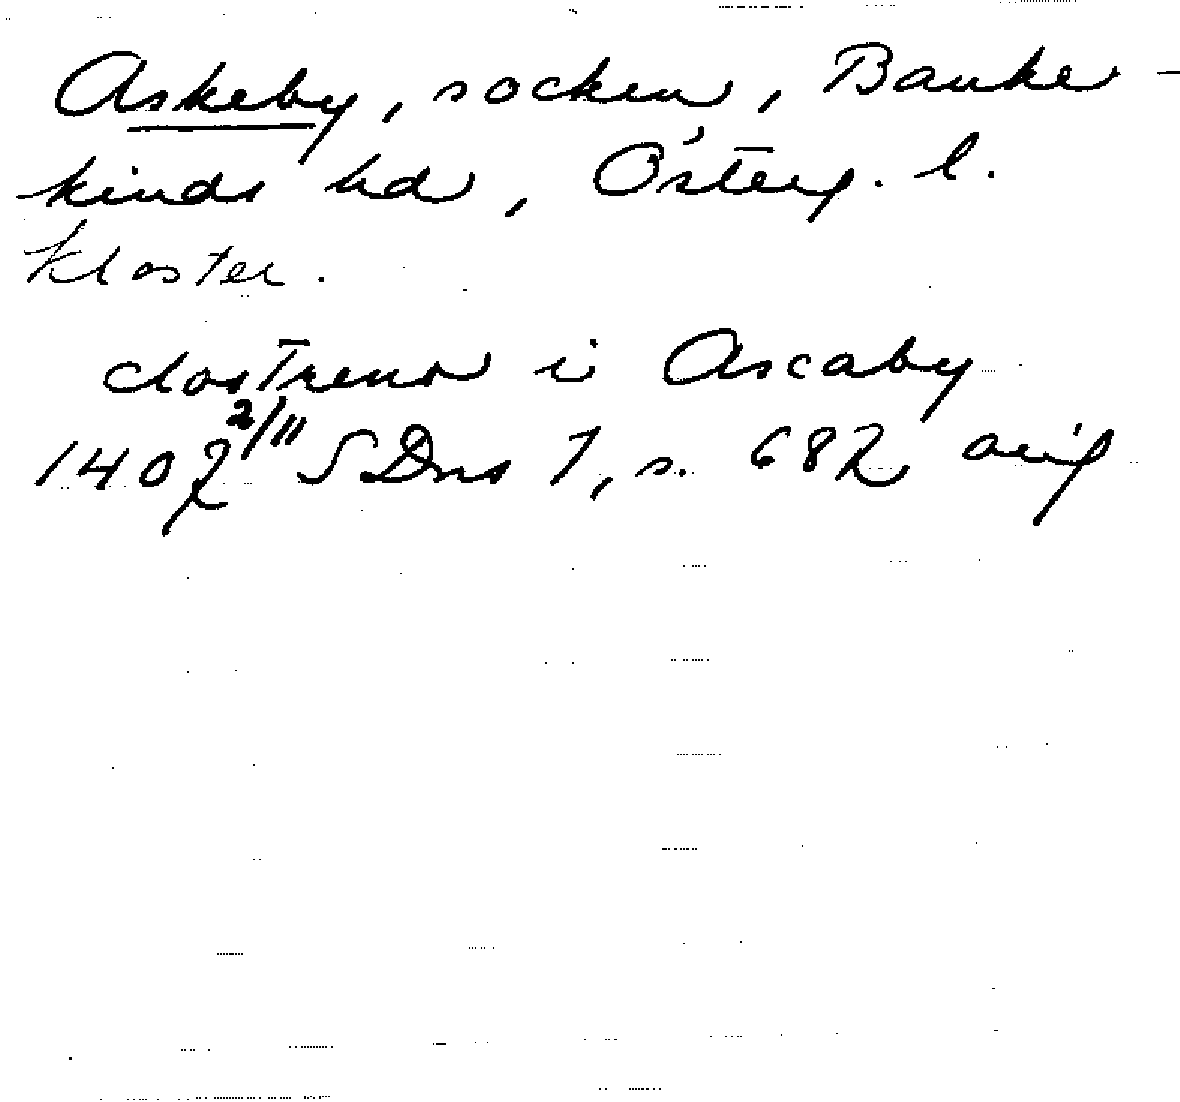 Askeby, socken, Banke-
kinds hd, Österg. l.
Kloster.
clostreno i Ascaby
1407 2/11 SDns 1, s. 682 avig